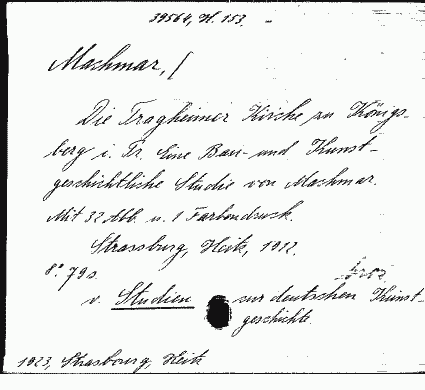 39564, H. 153. -
Machmar, [
Die Tragheimer Kirche zu Königs-
berg i. Pr. Eine Bau- und Kunst-
geschichtliche Studie von Machmar.
Mit 32 Abb. u. 1 Farbendruck.
Strassburg, Heitz, 1912.
8° 79 s.
v. Studien zur deutschen Kunst-
geschichte.
1023, Strasbourg, Heitz